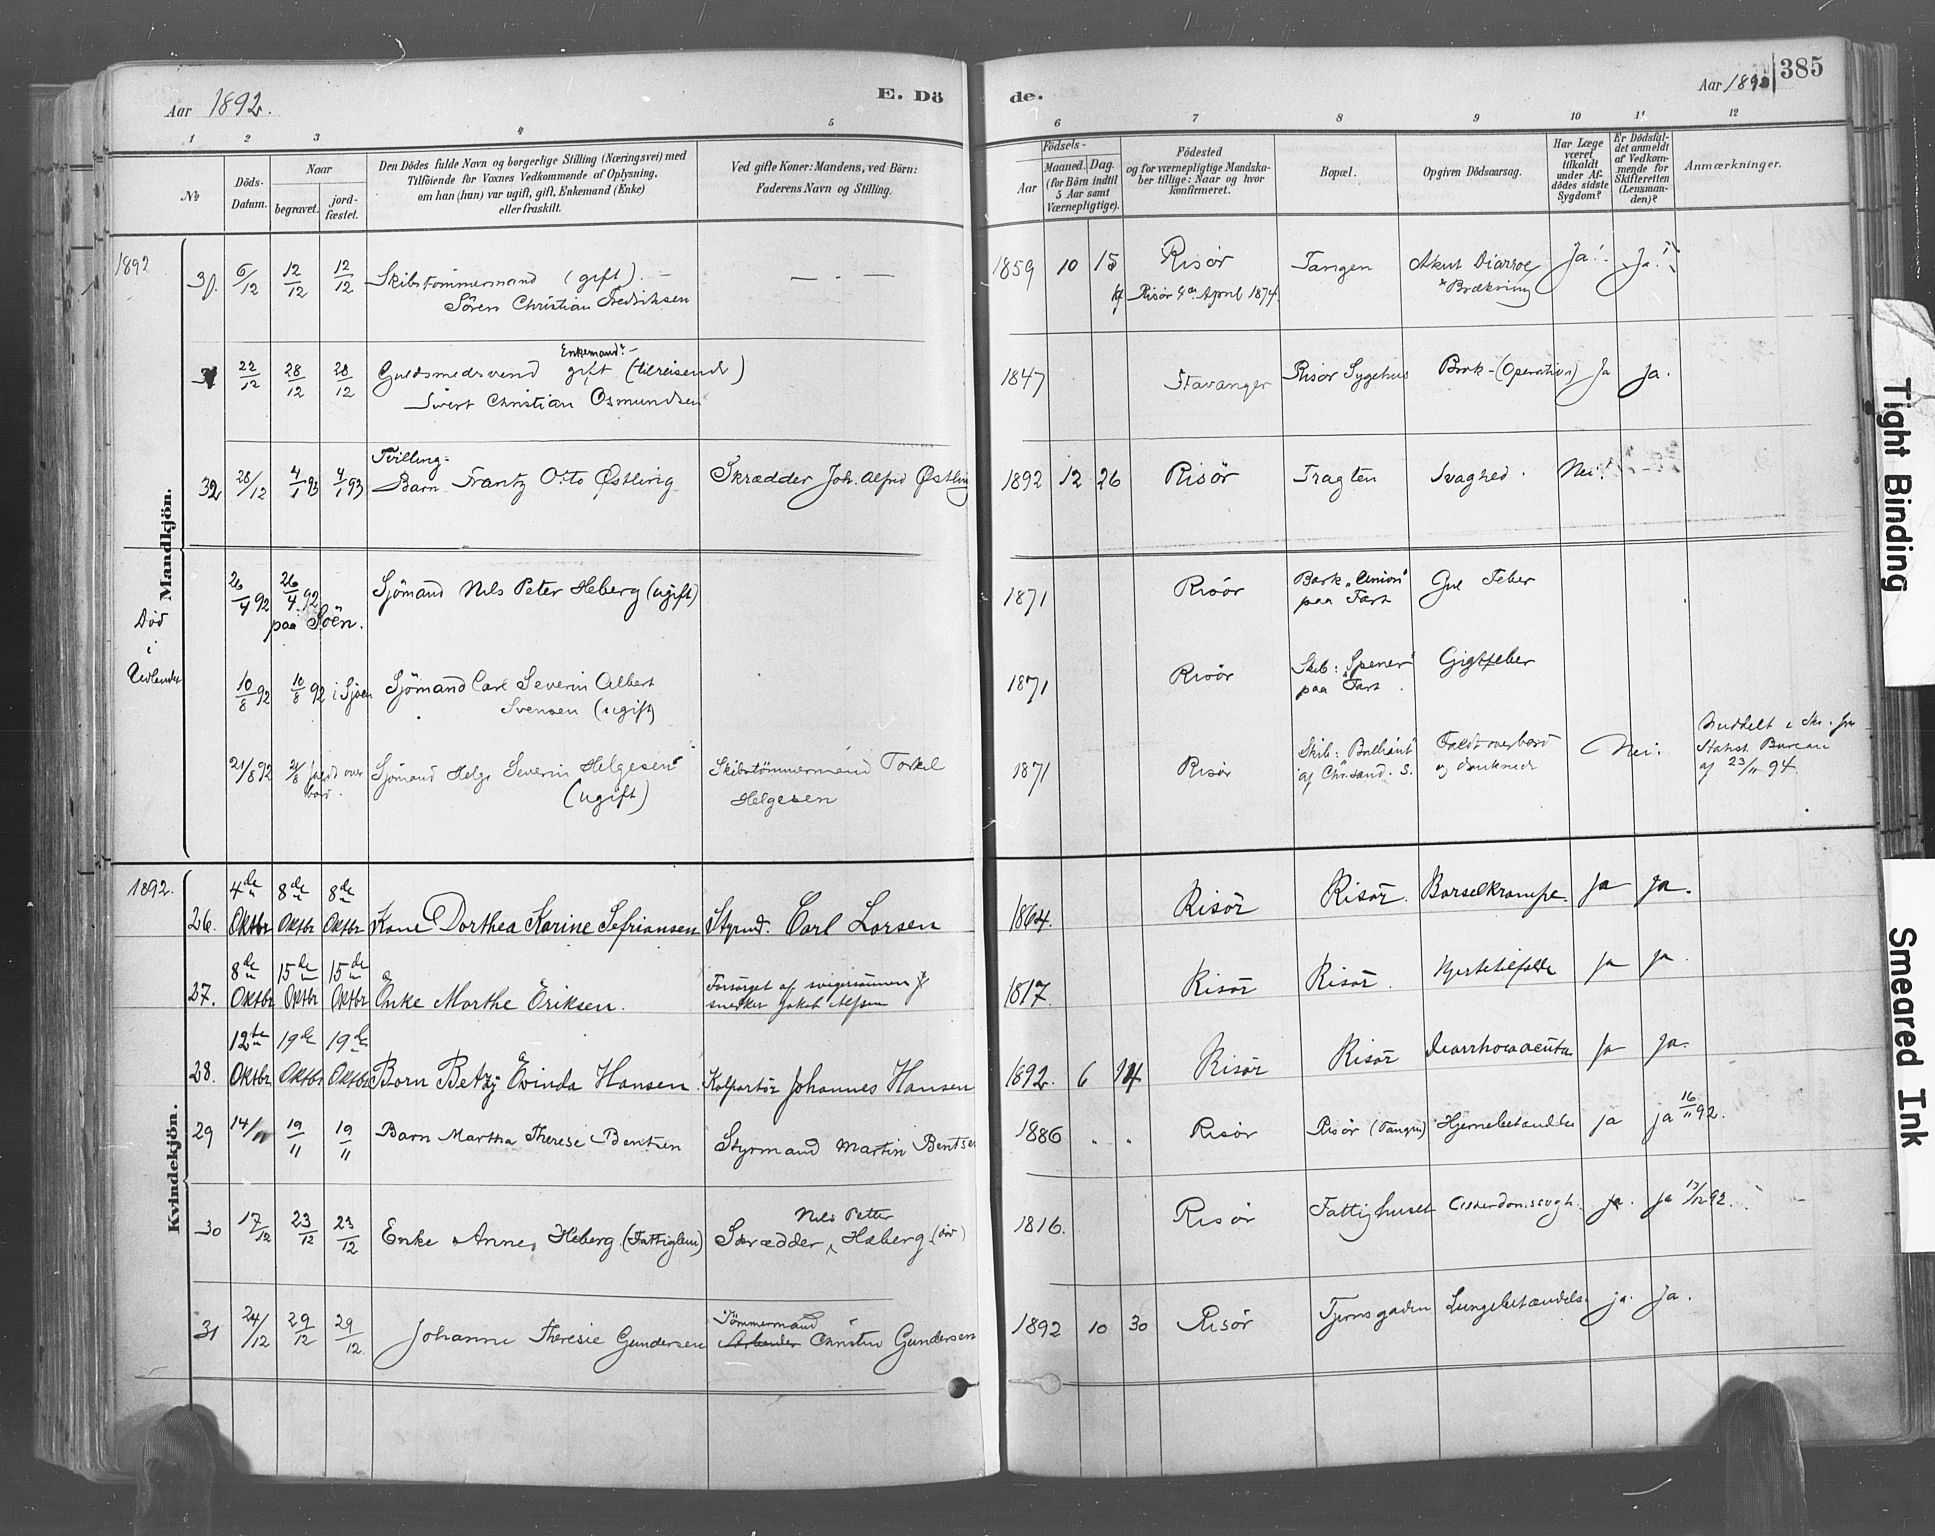 Aar 1892.
E. Dö
de.
Aar 1892
385
1 2 3 4 5 6 7 8 9 10 11 12
No
Döds-
Datum.
Naar
begravet.
jord-
fæstet.
Den Dödes fulde Navn og borgerlige Stilling (Næringsvei) med
Tilföiende for Voxnes Vedkommende af Oplysning,
om han (hun) var ugift, gift, Enkemand (Enke)
eller fraskilt.
Ved gifte Koner: Mandens, ved Börn:
Faderens Navn og Stilling.
Födsels-
Aar
Maaned. Dag.
(for Börn indtil
5 Aar samt
Værnepligtige).
Födested
og for værnepligtige Mandska-
ber tillige: Naar og hvor
konfirmeret.
Bopæl.
Opgiven Dödsaarsag.
Har Læge
været
tilkaldt
under Af-
dödes sidste
Sygdom?
Er Dödsfal-
det anmeldt
af Vedkom-
mende for
Skifteretten
(Lensman-
den)?
Anmærkninger.
Mandkjön.
1892
30. 6/12 12/12 12/12 Skibstømmermand (gift). — . — 1859 10 15 Risør Tangen Akut Diarroe Ja! Ja!
Sören Christian Fredriksen Risör April 1874. Brækning
Enkemand
31 22/12 28/12 28/12 Guldsmedsvend gift (tilreisende) 1847 Stavanger Risør Sygehus Brok - (Operation) Ja Ja.
Sivert Christian Osmundsen
Tvilling-
32 28/12 4/1 93 4/1 93 Barn Frantz Otto Østling Skrædder Joh. Alfred Østling 1892 12 26 Risör Tragten Svaghed. Nei!
Død
i
Udlandet
26/4 92 26/4 92 Sjömand Nils Peter Heberg (ugift) 1871 Risör Bark "Union" Gul Feber
paa Söen. paa Fart
10/8 92 10/8 92 i Sjøen Sjömand Carl Severin Albert 1871 Risör Skib: "Spener" Gigtfeber
Svensen (ugift) paa Fart.
21/8 92 21/8 faldt over Sjömand Helge Severin Helgesen Skibstömmermand Torkel 1871 Risör Skib: "Brilliant" Faldt overbord Nei. Meddelt i Skr. fra
bord. (ugift) Helgesen af Chr.sand. S. og druknede Statist. Bureau
af 23/11 94.
Kvindekjön.
1892.
26. 4de Oktbr 8de Oktbr 8de Oktbr Kone Dorthea Karine Sefriansen Styrmd. Carl Larsen 1864. Risör Risör. Barselkrampe. Ja Ja.
27. 8de Oktbr 15de Oktbr 15de Oktbr Enke Marthe Eriksen. Forsörget af svigersönnen 1817. Risör Risör. Hjertetilfælde Ja Ja.
snedker Jakob Alfsen
28. 12te Oktbr 19de Oktbr 19de Oktbr Barn Betzy Evinda Hansen. Kolportör Johannes Hansen 1892. 6 14 Risör Risör Diarrhoea acuta Ja Ja.
29 14/11 19/11 19/11 Barn Martha Therese Bentzen Styrmand Martin Bentsen 1886 " " Risör Risör (Tangen) Hjernebetændelse ja ja 16/11 92.
Nils Petter
30 17/12 23/12 23/12 Enke Anne Heberg. (Fattiglem) Skrædder Hæberg (död) 1816. Risör Fattighuset Alderdomssvagh. ja. ja 17/12 92.
Tömmermand
31 24/12 29/12 29/12 Johanne Theresie Gundersen Arbeider Christen Gundersen 1892 10 30 Risör Tjernsgaden Lungebetændelse ja. ja.
Tight Binding
Smeared Ink